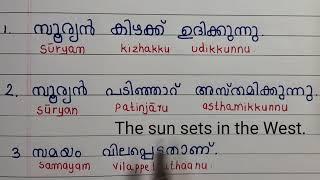 1. സൂര്യൻ കിഴക്ക് ഉദിക്കുന്നു.
sūryan kizhakku udikkunnu
2. സൂര്യൻ പടിഞ്ഞാറ് അസ്തമിക്കുന്നു.
sūryan patinjāru asthamikkunnu
The sun sets in the West.
3 സമയം വിലപ്പെട്ടതാണ്.
samayam